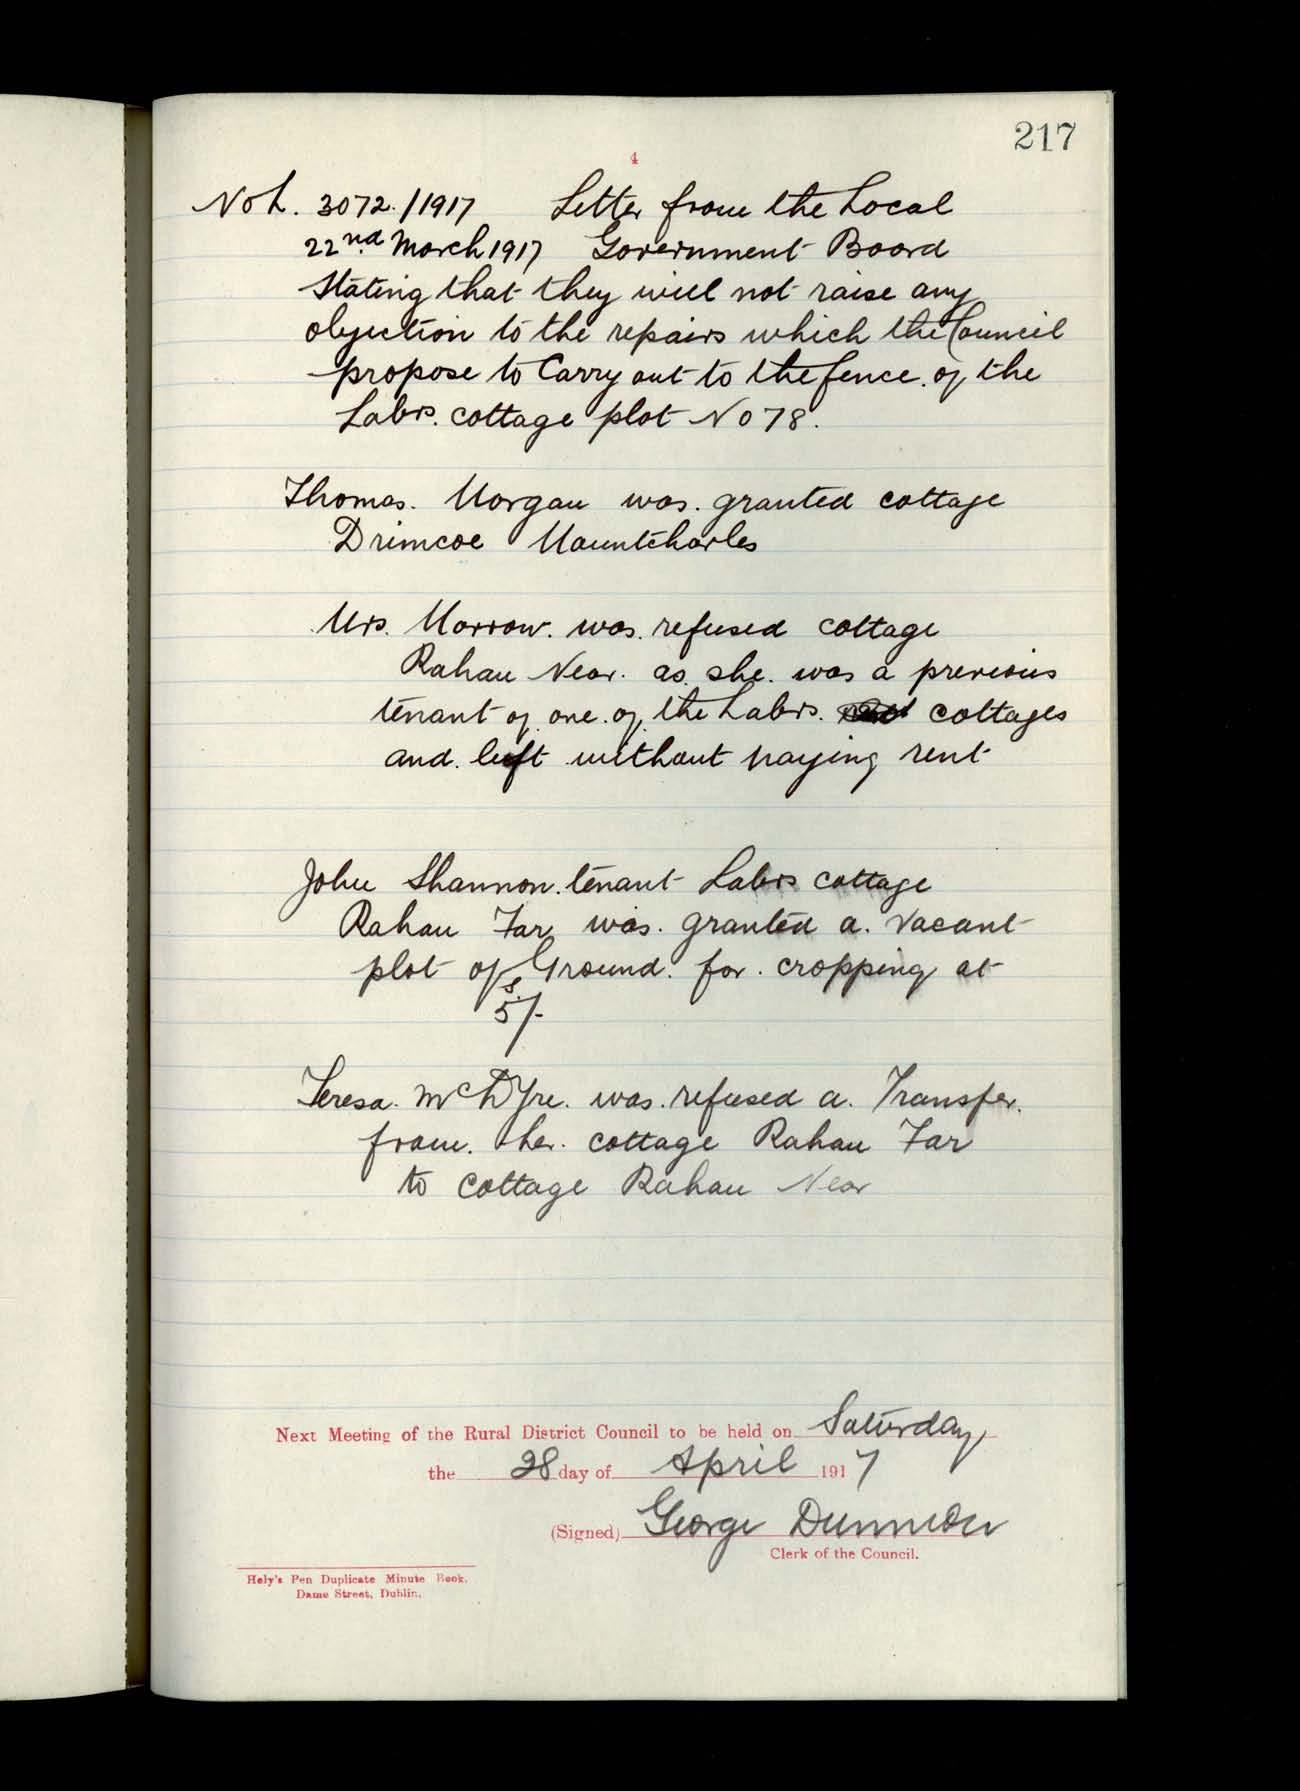 217
4
No L. 3072./1917 Letter from the Local
22nd March 1917 Government Board
Stating that they will not raise any
objection to the repairs which the Council
propose to Carry out to the fence of the
Labrs. cottage plot No 78.
Thomas. Morgan was. granted cottage
Drimcoe Mountcharles
Mrs. Morrow. was. refused cottage
Rahan Near. as. she. was a previous
tenant of one. of the Labrs. cottages
and. left without paying rent
John Shannon. tenant Labrs cottage
Rahan Far was. granted a. vacant
plot of Ground. for. cropping at
s.
5/-
Teresa. was. refused a. Transfer.
from. her. cottage Rahan Far
to cottage Rahan Near
Next Meeting of the Rural District Council to be held on Saturday
the 28 day of April 1917
(Signed) George
Clerk of the Council.
Hely's Pen Duplicate Minute Book.
Dame Street, Dublin.